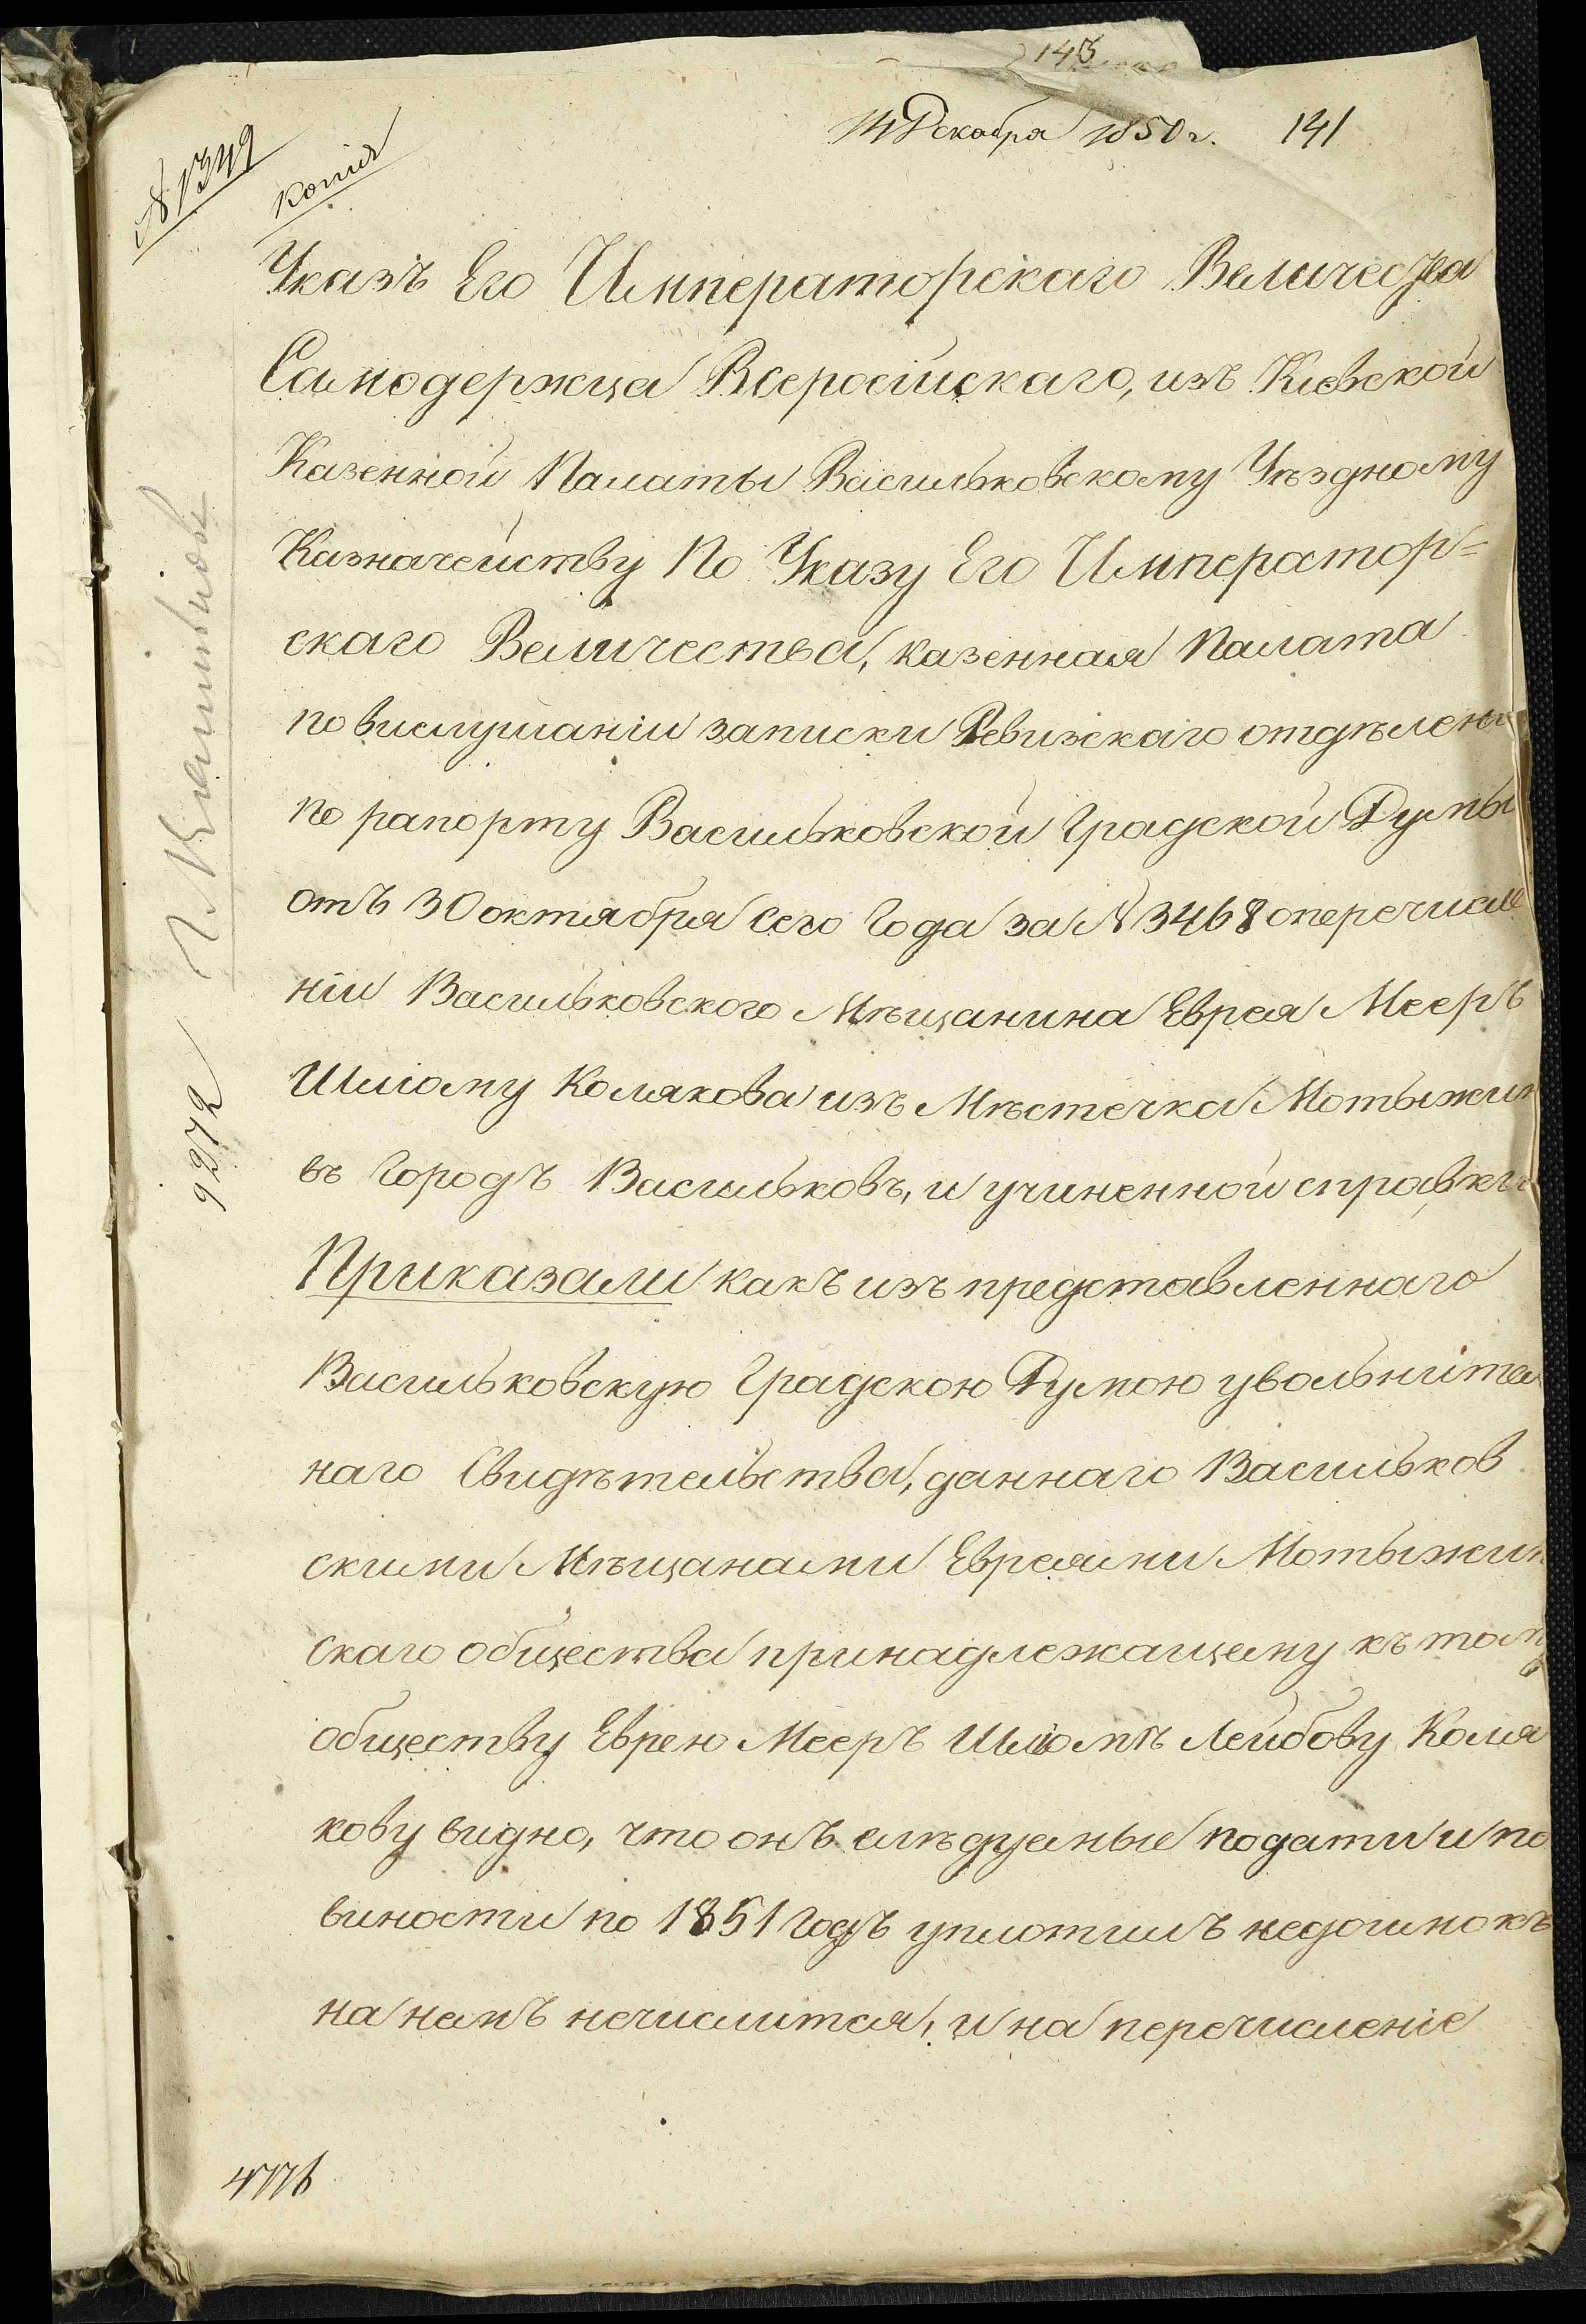 143
14 Декабря 1850 г. 141
№ 1349
копія
Указъ Его Императорскаго Величества
Самодержца Всеросійскаго, изъ Кіевской
Казенной Палаты Васильковскому Уѣздному
Казначейству По Указу Его Император=
скаго Величества, казенная Палата
по вислушаніи записки Ревизскаго отдѣлені
по рапорту Васильковской Градской Думы
отъ 30 октября сего Года за № 3468 оперечисле
ніи Васильковского Мѣщанина Еврея Мееръ
Шліому Колякова изъ Мѣстечка Мотыжин
въ Городъ Васильковъ, и учиненной справки
Приказали какъ изъ представленнаго
Васильковскую Градскою Думою увольнител
наго Свидѣтельства, даннаго Васильков
скими Мѣщанами Евреями Мотыжин
скаго общества принадлежащему къ тому
обществу Еврею Мееръ Шліомѣ Лейбову Коля
кову видно, что онъ слѣдуемые подати и по
виности по 1851 Годъ уплотилъ недоимокъ
на немъ нечислится, и на перечисленіе
9272
4776